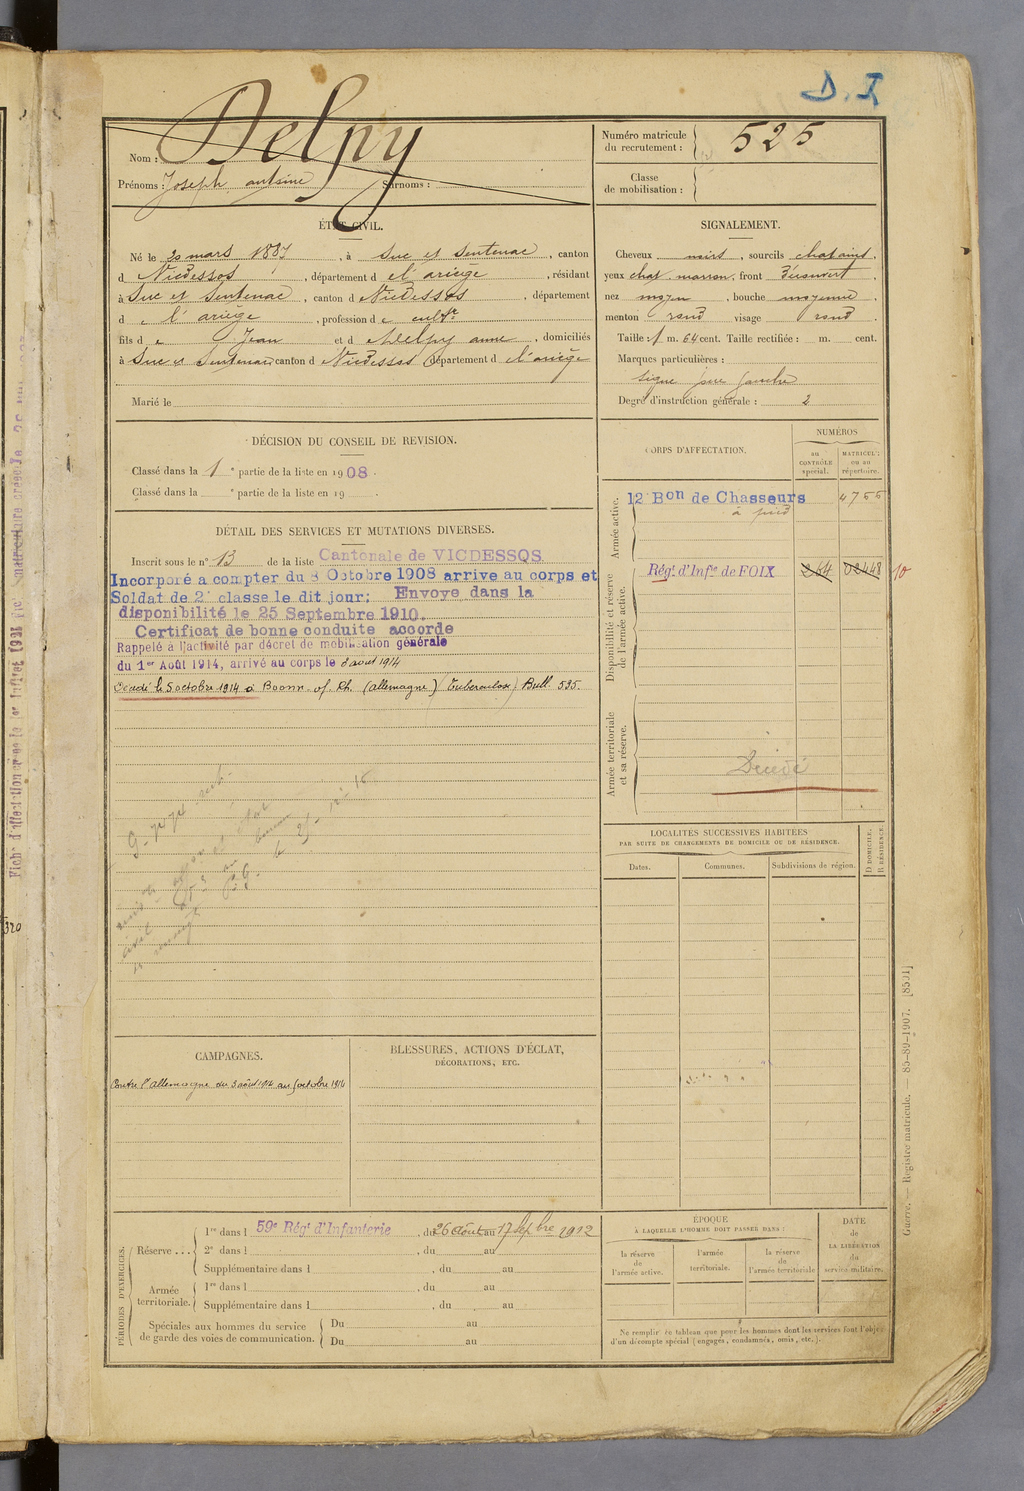 D. I
Nom : Delpy
Prénoms : Joseph, antoine Surnoms :
Numéro matricule du recrutement : 525
Classe de mobilisation :
ÉTAT CIVIL.
Né le 20 mars 1887, à Suc et Sentenac, canton
d Vicdessos, département d el'ariège, résidant
à Suc et Sentenac, canton d Vicdessos, département
d e l'ariège, profession d e cultr
fils d e Jean et d e Delpy anne, domiciliés
à Suc et Sentenac, canton d Vicdessos département d e l'ariège
Marié le
SIGNALEMENT.
Cheveux noirs, sourcils chatains,
yeux chat. marron, front découvert,
nez moyen, bouche moyenne,
menton rond visage rond.
Taille : 1 m. 64 cent. Taille rectifiée : m. cent.
Marques particulières :
signe joue gauche
Degré d'instruction générale : 2
DÉCISION DU CONSEIL DE REVISION.
Classé dans la 1e partie de la liste en 1908.
Classé dans la e partie de la liste en 19
DÉTAIL DES SERVICES ET MUTATIONS DIVERSES.
Inscrit sous le n° 13 de la liste Cantonale de VICDESSOS
Incorporé a compter du 8 Octobre 1908 arrive au corps et
Soldat de 2e classe le dit jour; Envoye dans la
disponibilité le 25 Septembre 1910.
Certificat de bonne conduite accorde
Rappelé à l'activité par décret de mobilisation générale
du 1er Août 1914, arrivé au corps le 3 aout 1914
Décédé le 5 octobre 1914 à Boonn. of. Rh. (allemagne) (Tuberculose) Bull. 535.
CORPS D'AFFECTATION.
NUMÉROS
au CONTRÔLE spécial.
MATRICULE ou au répertoire.
Armée active.
12 Bon de Chasseurs 4755
à pied
Disponibilité et réserve de l'armée active.
Régt d'Infie de FOIX 264 02448 10
Armée territoriale et sa réserve.
Décédé
LOCALITÉS SUCCESSIVES HABITÉES
PAR SUITE DE CHANGEMENTS DE DOMICILE OU DE RÉSIDENCE.
Dates. Communes. Subdivisions de région. D DOMICILE. R RÉSIDENCE.
CAMPAGNES.
Contre l'allemagne du 3 août 1914 au 5 octobre 1914
BLESSURES, ACTIONS D'ÉCLAT,
DÉCORATIONS, ETC.
PÉRIODES D'EXERCICES.
Réserve ...
1re dans l 59e Régt d'Infanterie, du 26 Août au 17 Sepbre 1912
2e dans l , du au
Supplémentaire dans l , du au
Armée territoriale.
1re dans l , du au
Supplémentaire dans l , du au
Spéciales aux hommes du service
de garde des voies de communication.
Du au
Du au
ÉPOQUE
À LAQUELLE L'HOMME DOIT PASSER DANS :
la réserve de l'armée active.
l'armée territoriale.
la réserve de l'armée territoriale
DATE DE LA LIBÉRATION du service militaire.
Ne remplir ce tableau que pour les hommes dont les services font l'objet
d'un décompte spécial (engagés, condamnés, omis, etc.).
Guerre. — Registre matricule. — 85-89-1907. [8501]
320